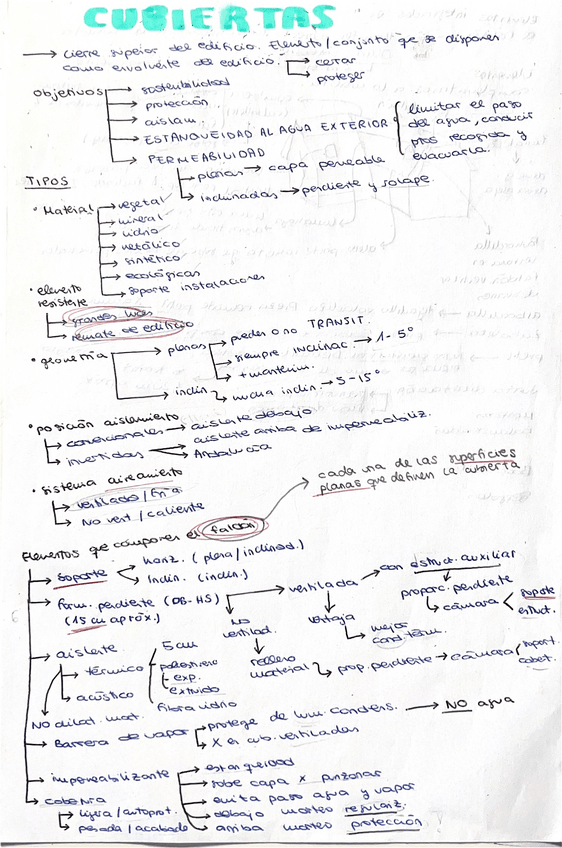 CUBIERTAS
→ cierre superior del edificio. Elemento/conjunto que se disponen
como envolvente del edificio. → cerrar
→ proteger
Objetivos → sostenibilidad
→ protección
→ aislam.
→ ESTANQUEIDAD AL AGUA EXTERIOR { limitar el paso
del agua, conducir
recogida y
evacuarla.
→ PERMEABILIDAD
→ planas → capa permeable
→ Inclinadas → pendiente y solape.
TIPOS
• Material → vegetal
→ mineral
→ vidrio
→ metálico
→ sintético
→ ecológicas
→ soporte instalaciones
• elemento
resistente
→ grandes luces
→ remate de edificio
• geometría → planas → pueden o no TRANSIT.
→ siempre INCLINAC. → 1-5º
→ + mantenim.
→ inclin → mucha inclin. → 5-15º
• posición aislamiento
→ convencionales → aislante debajo
→ invertidas → aislante arriba de impermeabiliz.
→ Andalucía
• sistema aireamiento
→ ventilado / fría
→ No vent / caliente
→ cada una de las superficies
planas que definen la cubierta
Elementos que componen el faldón
→ soporte → horiz. (plana/inclinad.)
→ Inclin. (inclin.)
→ form. pendiente (DB-HS) → ventilada → con estruct. auxiliar
(15 cm aprox.)
proporc. pendiente
→ cámara < soporte
estruct.
→ NO
ventilad.
relleno
material → prop. pendiente → cámara < soport.
cobert.
ventaja
→ mejor
cond. térm.
→ aislante
→ térmico
→ acústico
5 cm
poliestireno
→ exp.
→ extruido
fibra vidrio
NO dilat. mat.
→ Barrera de vapor → protege de hum. condens. → NO agua
→ X en cub. ventiladas
→ impermeabilizante → estanqueidad
→ sobre capa x punzonar
→ evita paso agua y vapor
→ debajo mortero regulariz.
→ arriba mortero protección
→ cobertura
→ ligera / autoprot.
→ pesada / acabado